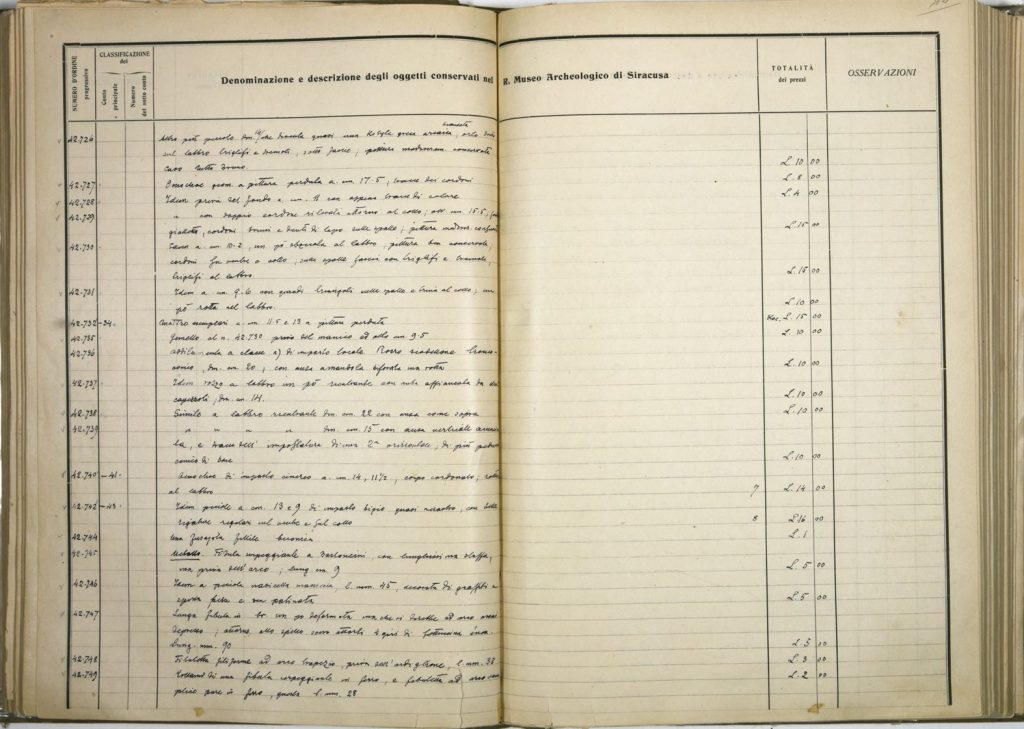 NUMERO D'ORDINE progressivo
CLASSIFICAZIONE del
Conto principale
Numero del sotto conto
Denominazione e descrizione degli oggetti conservati nel R. Museo Archeologico di Siracusa
TOTALITÀ dei prezzi
OSSERVAZIONI
42.726 più piccolo quasi una
sul labbro triglifi e sotto fascie; pittura conservata
tutto L. 10 00
42.727 a pittura perduta a. cm. 17.5; tracce dei cordoni L. 8 00
42.728 Idem priva del fondo a. cm. 11 con appena tracce di colore L. 4 00
42.729 " con doppio cordone rilevato attorno al collo; alt. cm. 15.5,
cordoni, e denti di lupo sulle spalle; pittura L. 15 00
42.730 Idem a. cm. 10.2, un pò sboccato al labbro, pittura ben conservata;
cordoni fra ventre e collo, sulle spalle fascia con triglifi e
triglifi al labbro. L. 15 00
42.731 Idem a cm. 9.6 con grandi triangoli sulle spalle e al collo; un
pò rotta nel labbro. L. 10 00
42.732 -34. Quattro esemplari a. cm. 11.5 e 13 a pittura perduta L. 15 00
42.735 Gemello al n. 42.730 privo del manico ad alto cm. 9.5 L. 10 00
42.736 a) di impasto locale. Rozzo scodellone tronco-
conico, dm. cm. 20; con ansa a mandola biforata ma rotta L. 10 00
42.737 Idem rozzo a labbro un pò rientrante con ansa affiancata da due
capezzoli; dm. cm. 14. L. 10 00
42.738 Simile a labbro rientrante dm. cm. 22 con ansa come sopra L. 10 00
42.739 " " " " dm. cm. 15 con ansa verticale
e tracce dell' impostatura di una 2ª orizzontale, di più
conico di base L. 10 00
42.740 -41. di impasto cinereo a. cm. 14, 11½, corpo cordonato;
al labbro 7 L. 14 00
42.742 -43. Idem piccole a cm. 13 e 9 di impasto bigio quasi nerastro, con belle
rigature regolari sul ventre e sul collo 8 L. 16 00
42.744 Una fusajola fittile L. 1
42.745 Metallo. Fibula serpeggiante a bastoncini, con lunghissima staffa,
ma priva dell'arco; lung. cm 9 L. 5 00
42.746 Idem a piccola navicella l. mm. 45, decorata di graffiti a
spina pesce e ben patinata L. 5 00
42.747 Lunga fibula in br. un po deformata ma che si direbbe ad arco
depresso; attorno allo spillo sono attorti 4 giri di
lung. mm. 90 L. 5 00
42.748 Fibuletta filiforme ad arco trapezio, priva dell'ardiglione, l. mm. 38 L. 3 00
42.749 di una fibula serpeggiante in ferro, e fibuletta ad arco
plice pure in ferro, guasta l. mm. 28 L. 2 00